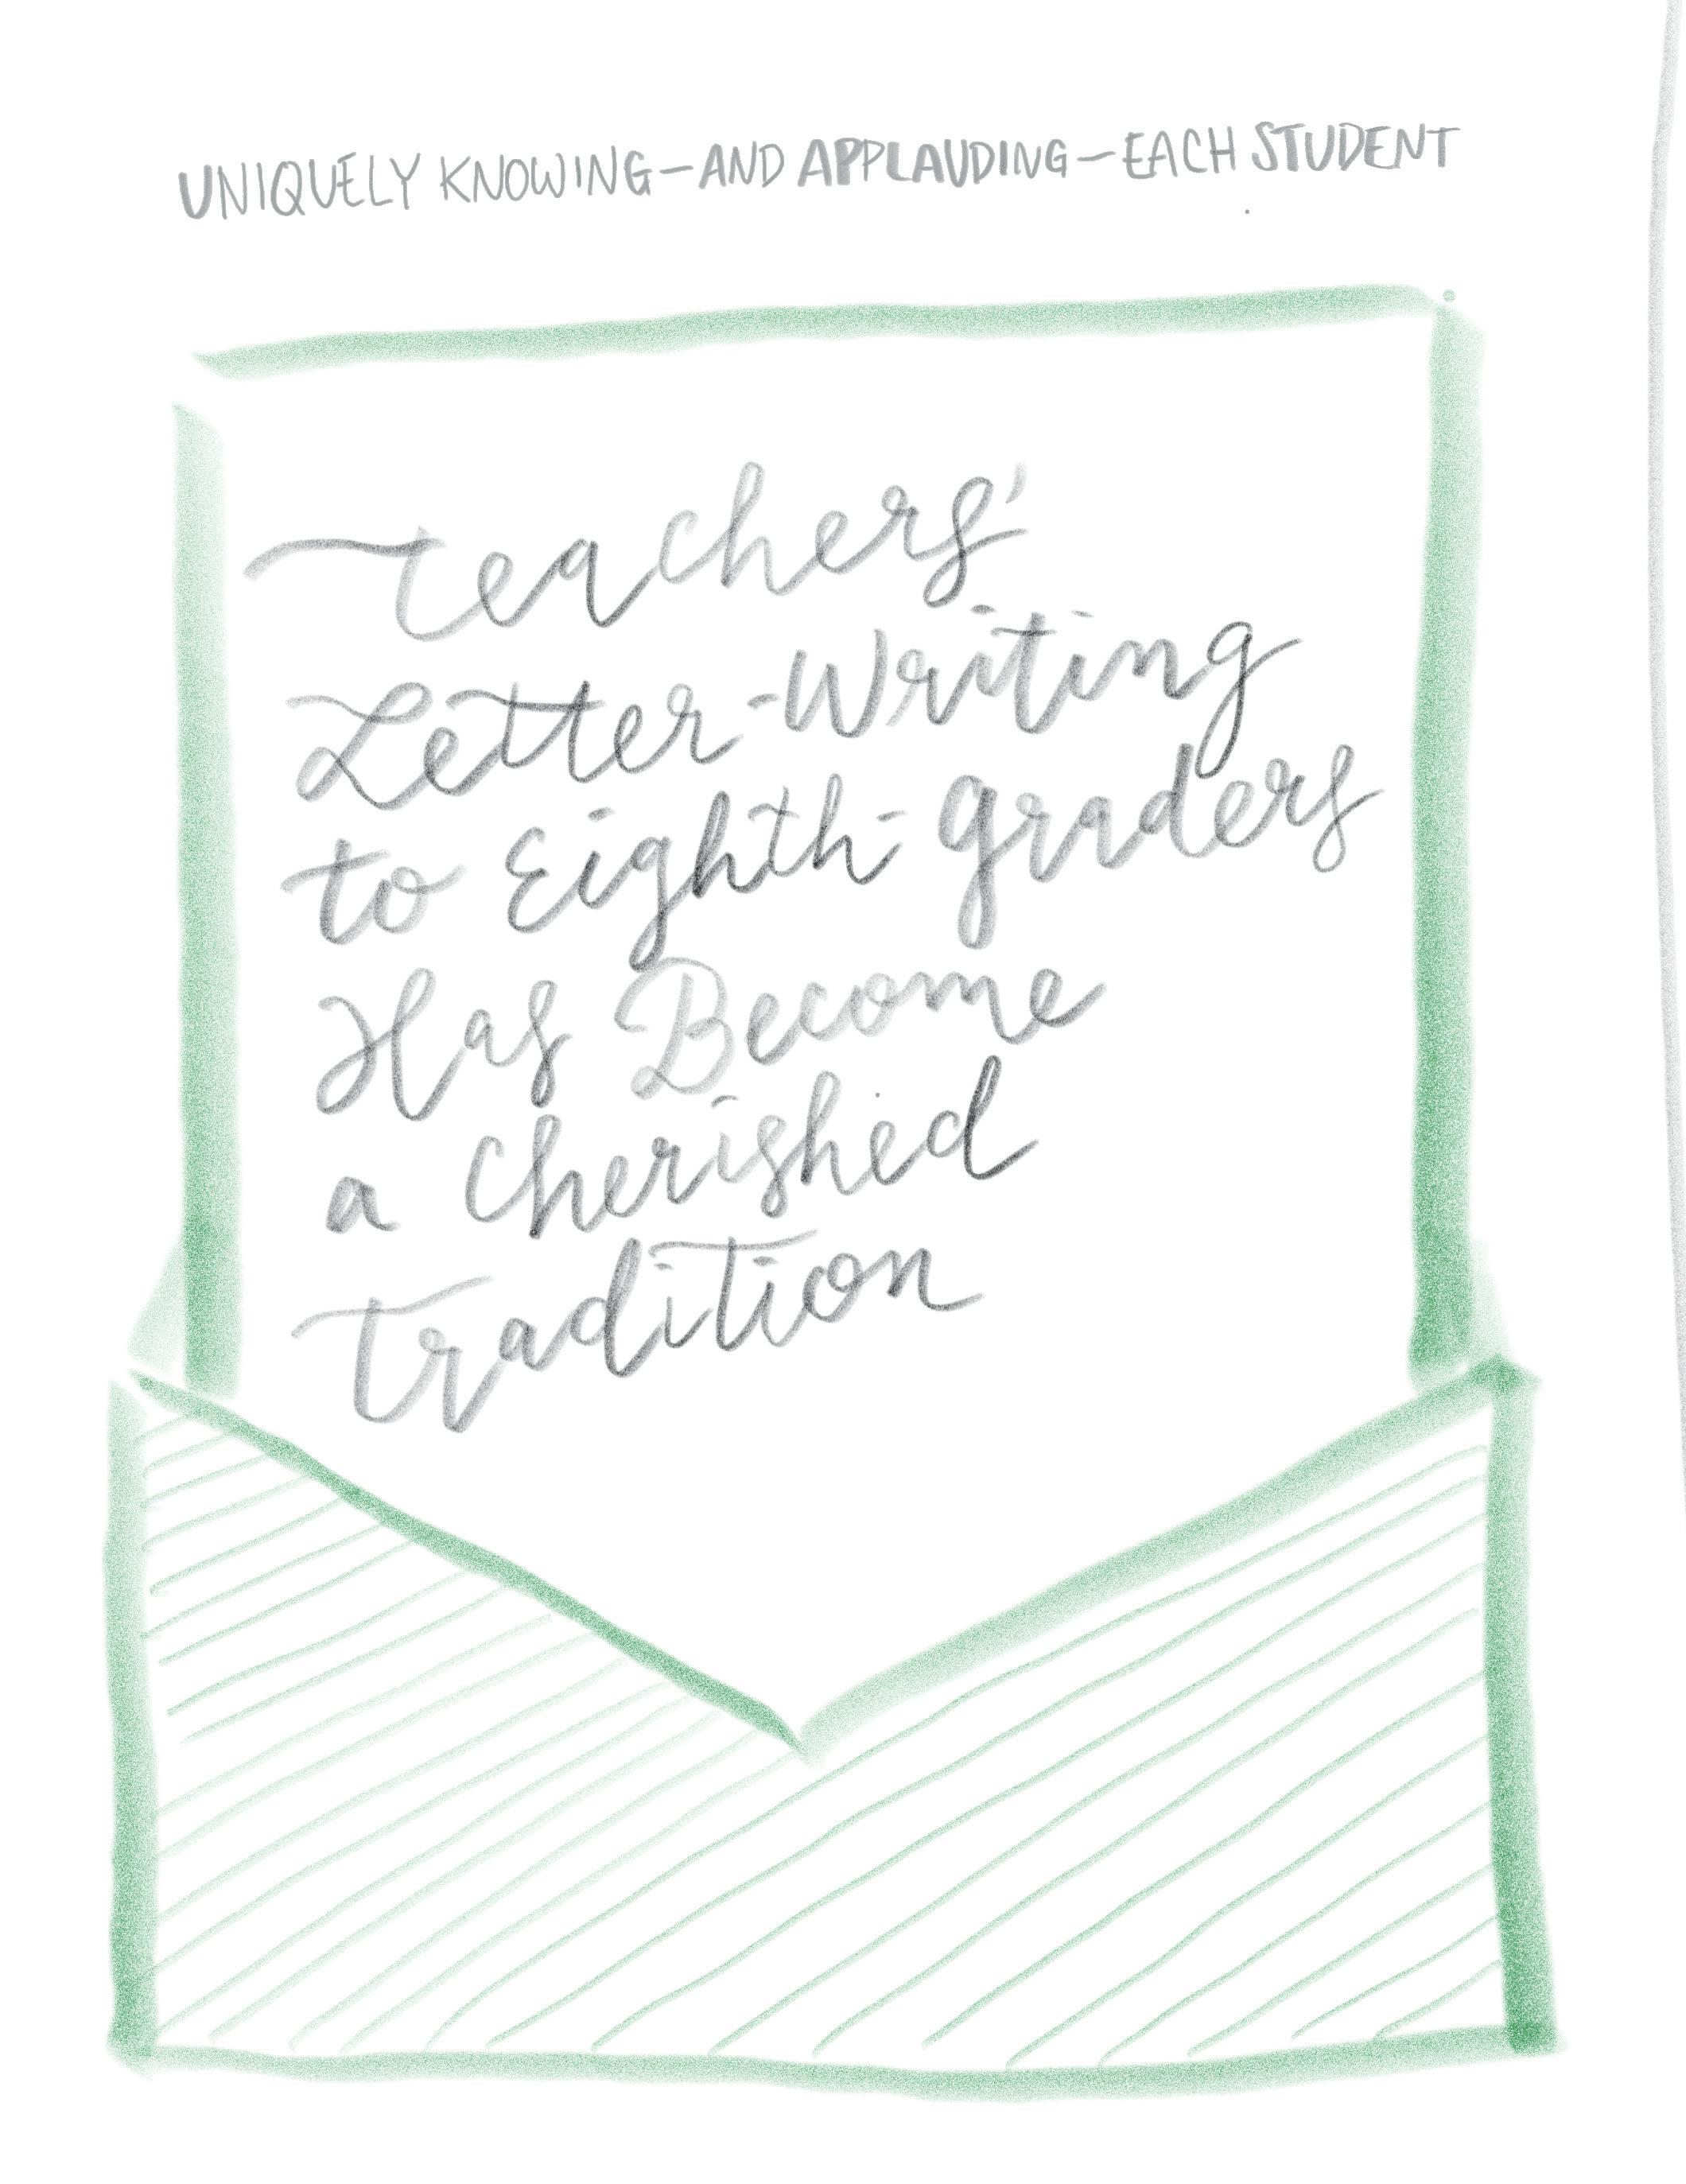 UNIQUELY KNOWING—AND APPLAUDING—EACH STUDENT
Teachers'
Letter-Writing
to Eighth-graders
Has Become
a Cherished
Tradition